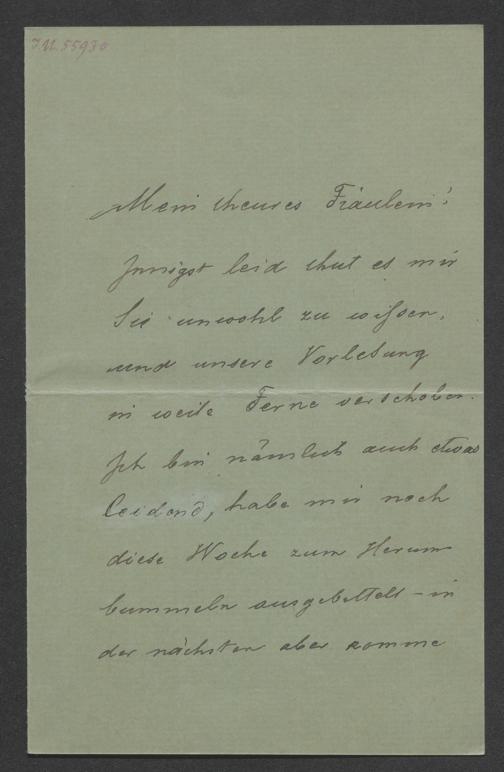 I.N. 55930
Mein theures Fräulein!
Innigst leid thut es mir
Sie unwohl zu wissen,
und unsere Vorlesung
in weite Ferne verschoben.
Ich bin nämlich auch etwas
leidend, habe mir noch
diese Woche zum Herum-
bummeln ausgebettelt – in
der nächsten aber komme